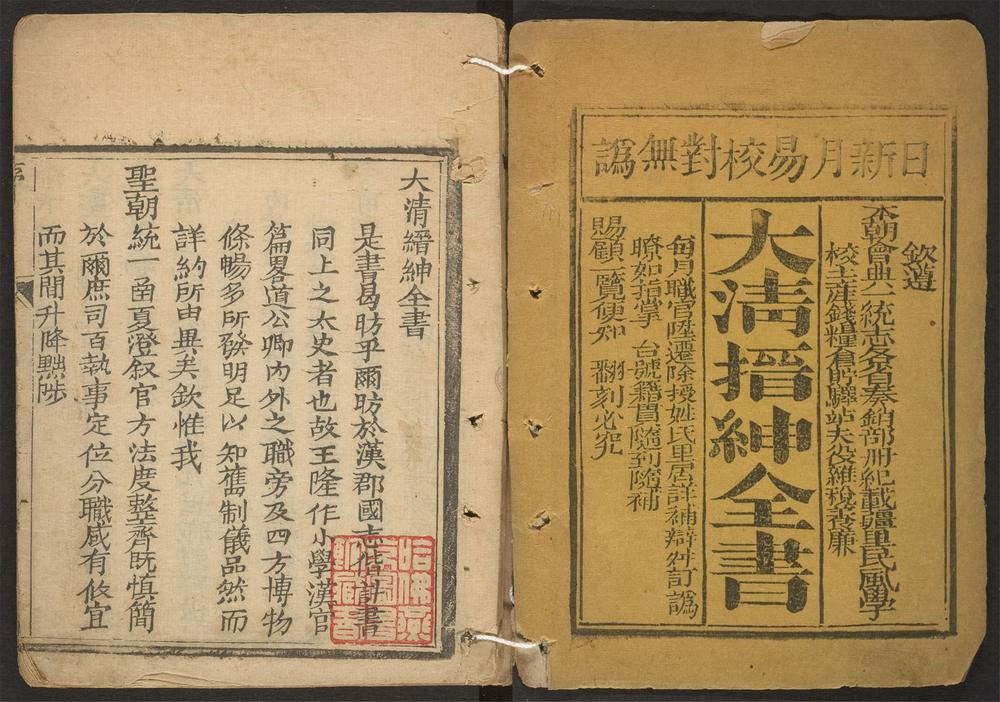 日新月易校對無譌
欽遵
本朝會典一統志各省奏銷部冊紀載疆里民風學
校土產錢糧倉貯驛站夫役雜稅養廉
大清搢紳全書
每月職官陞遷除授姓氏里居詳補辯舛訂譌
瞭如指掌 台號籍貫隨到隨補
賜顧一覽便知 翻刻必究
大清縉紳全書
是書曷昉乎爾昉於漢郡國志偕計書
同上之太史者也故王隆作小學漢官
篇畧道公卿內外之職旁及四方博物
條暢多所發明足以知舊制儀品然而
詳約所由異矣欽惟我
聖朝統一函夏澄叙官方法度整齊既慎簡
於爾庶司百執事定位分職咸有攸宜
而其間升降黜陟
序